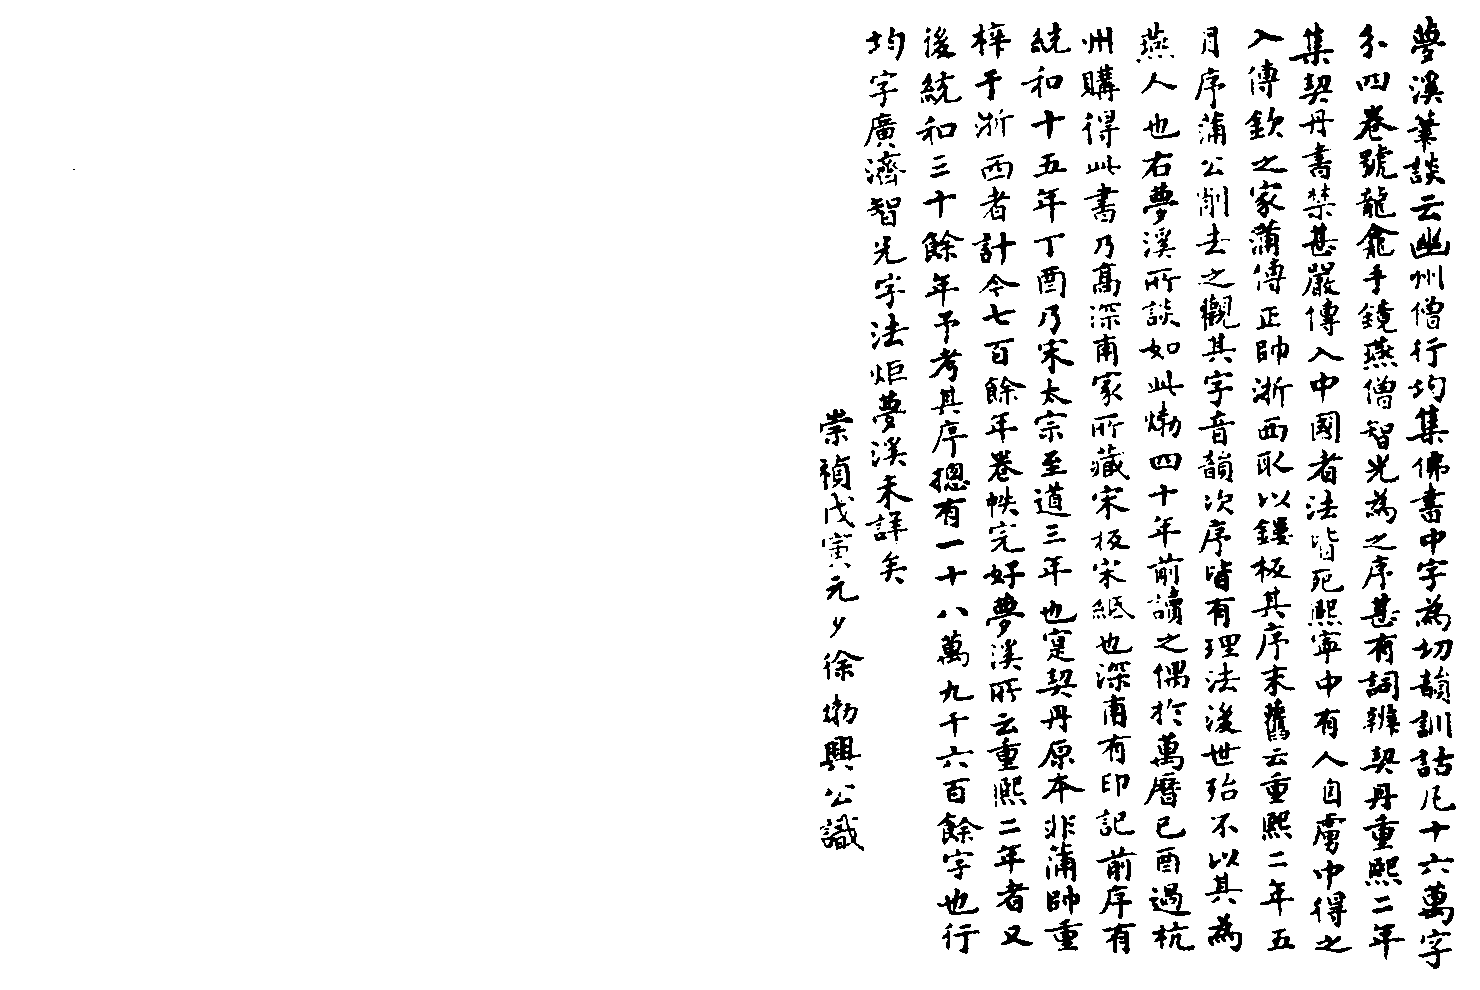 夢溪筆談云幽州僧行均集佛書中字為切韻訓詁凡十六萬字
分四卷號龍龕手鏡燕僧智光為之序甚有詞辨契丹重熙二年
集契丹書禁甚嚴傳入中國者法皆死熙寧中有人自虜中得之
入傳欽之家蒲傳正帥浙西取以鏤板其序末舊云重熙二年五
月序蒲公削去之觀其字音韻次序皆有理法後世殆不以其為
燕人也右夢溪所談如此𤊹四十年前讀之偶於萬曆己酉過杭
州購得此書乃高深甫家所藏宋板宋紙也深甫有印記前序有
統和十五年丁酉乃宋太宗至道三年也寔契丹原本非蒲帥重
梓于浙西者計今七百餘年卷帙完好夢溪所云重熙二年者又
後統和三十餘年予考其序摠有一十八萬九千六百餘字也行
均字廣濟智光字法炬夢溪未詳矣
崇禎戊寅元夕徐𤊹興公識